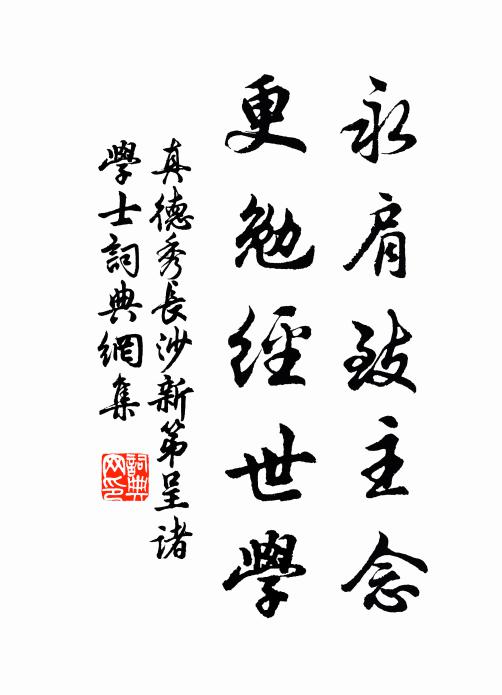 永肩致主念
更勉經世學
真德秀長沙新第呈諸
學士詞典網集
詞典
网印